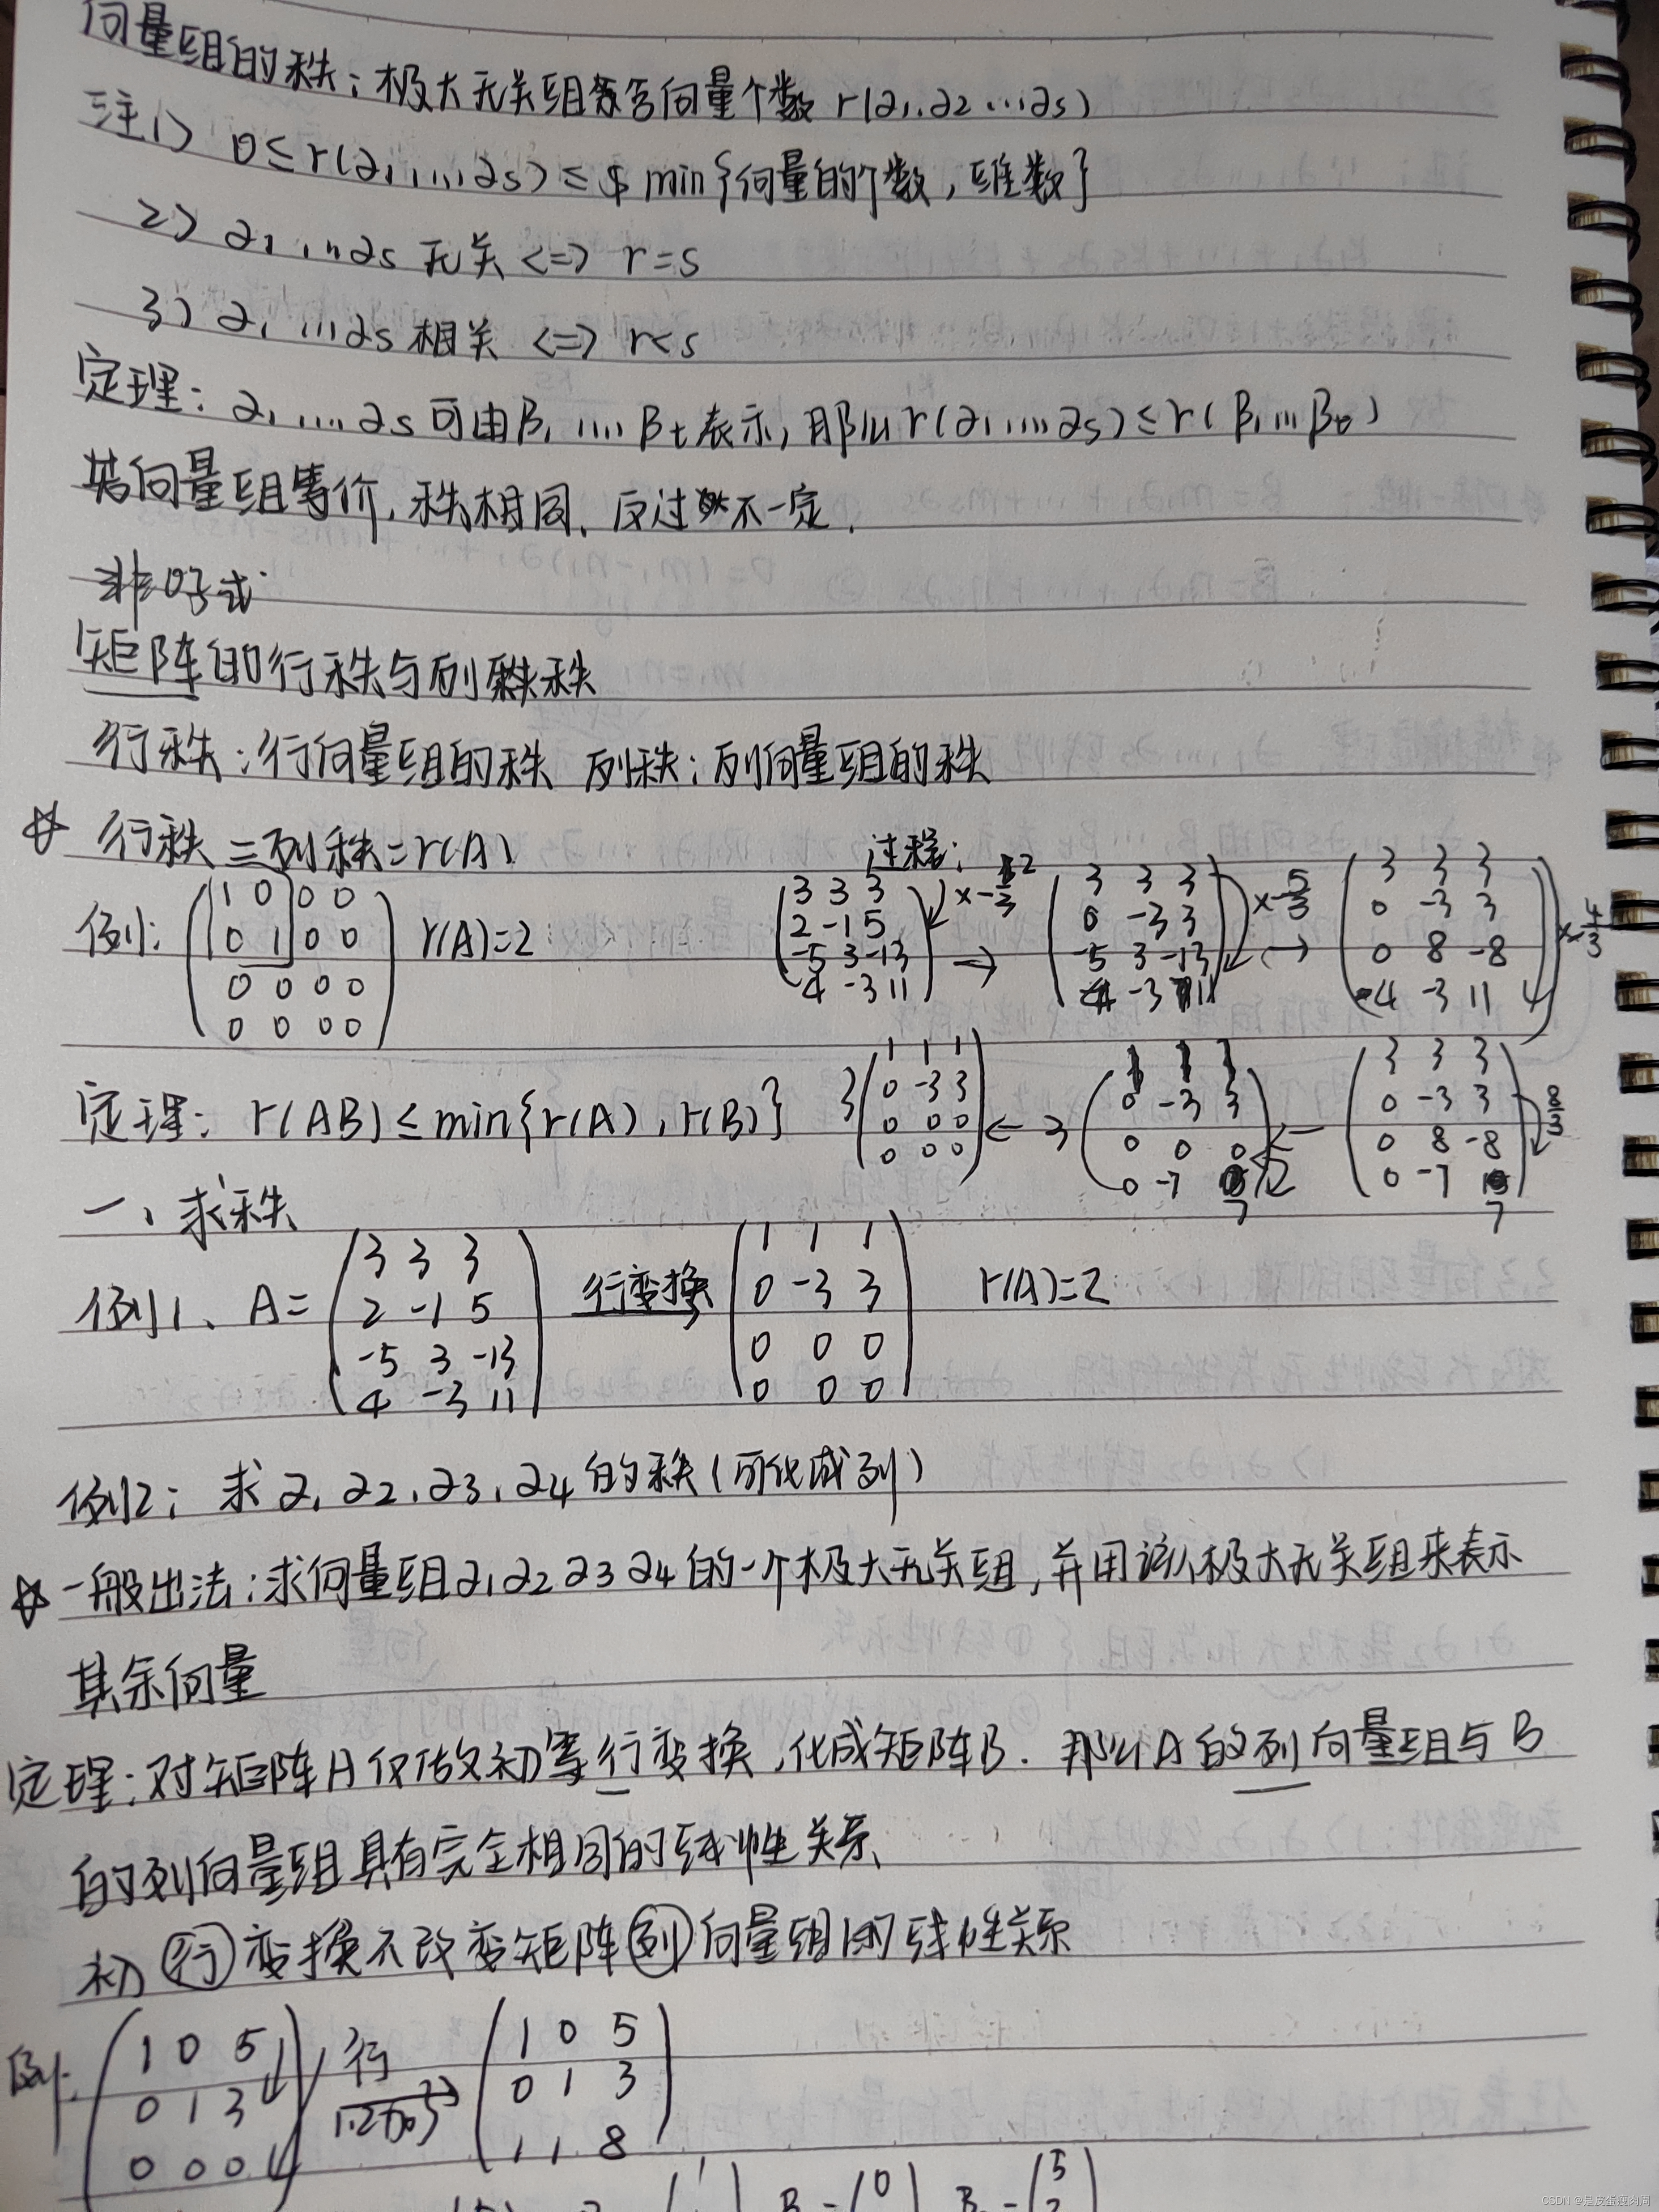 向量组的秩：极大无关组所含向量个数 r(α1.α2 ...αs)
注1) 0≤r(α1,...,αs)≤ min{向量的个数，维数}
2) α1 ,...αs 无关 <=> r=s
3) α1 ...αs 相关 <=> r<s
定理：α1,....αs可由β1 .... βt表示，那么r(α1....αs)≤r(β1...βt)
若向量组等价，秩相同，反过来不一定.
非0子式
矩阵的行秩与列秩
行秩：行向量组的秩 列秩：列向量组的秩
☆ 行秩=列秩=r(A)
过程：
例：
1 0 0 0
0 1 0 0
0 0 0 0
0 0 0 0
r(A)=2
3 3 3
2 -1 5
-5 3 -13
4 -3 11
×-2/3
→
3 3 3
0 -3 3
-5 3 -13
4 -3 11
×5/3
→
3 3 3
0 -3 3
0 8 -8
4 -3 11
×-4/3
3 3 3
0 -3 3
0 8 -8
0 -7 7
8/3
←
1 1 1
0 -3 3
0 0 0
0 -7 7
← 3
3
1 1 1
0 -3 3
0 0 0
0 0 0
定理：r(AB)≤min{r(A),r(B)}
一、求秩
例1、A=
3 3 3
2 -1 5
-5 3 -13
4 -3 11
行变换
1 1 1
0 -3 3
0 0 0
0 0 0
r(A)=2
例2：求α1 α2,α3,α4的秩(可化成列)
☆一般出法：求向量组α1α2 α3 α4的一个极大无关组，并用该极大无关组来表示
其余向量
定理：对矩阵A仅做初等行变换，化成矩阵B. 那么A的列向量组与B
的列向量组具有完全相同的线性关系
初行变换不改变矩阵列向量组的线性关系
例:
1 0 5
0 1 3
0 0 0
行
1.2加3
1 0 5
0 1 3
1 1 8
CSDN @是皮蛋瘦肉周